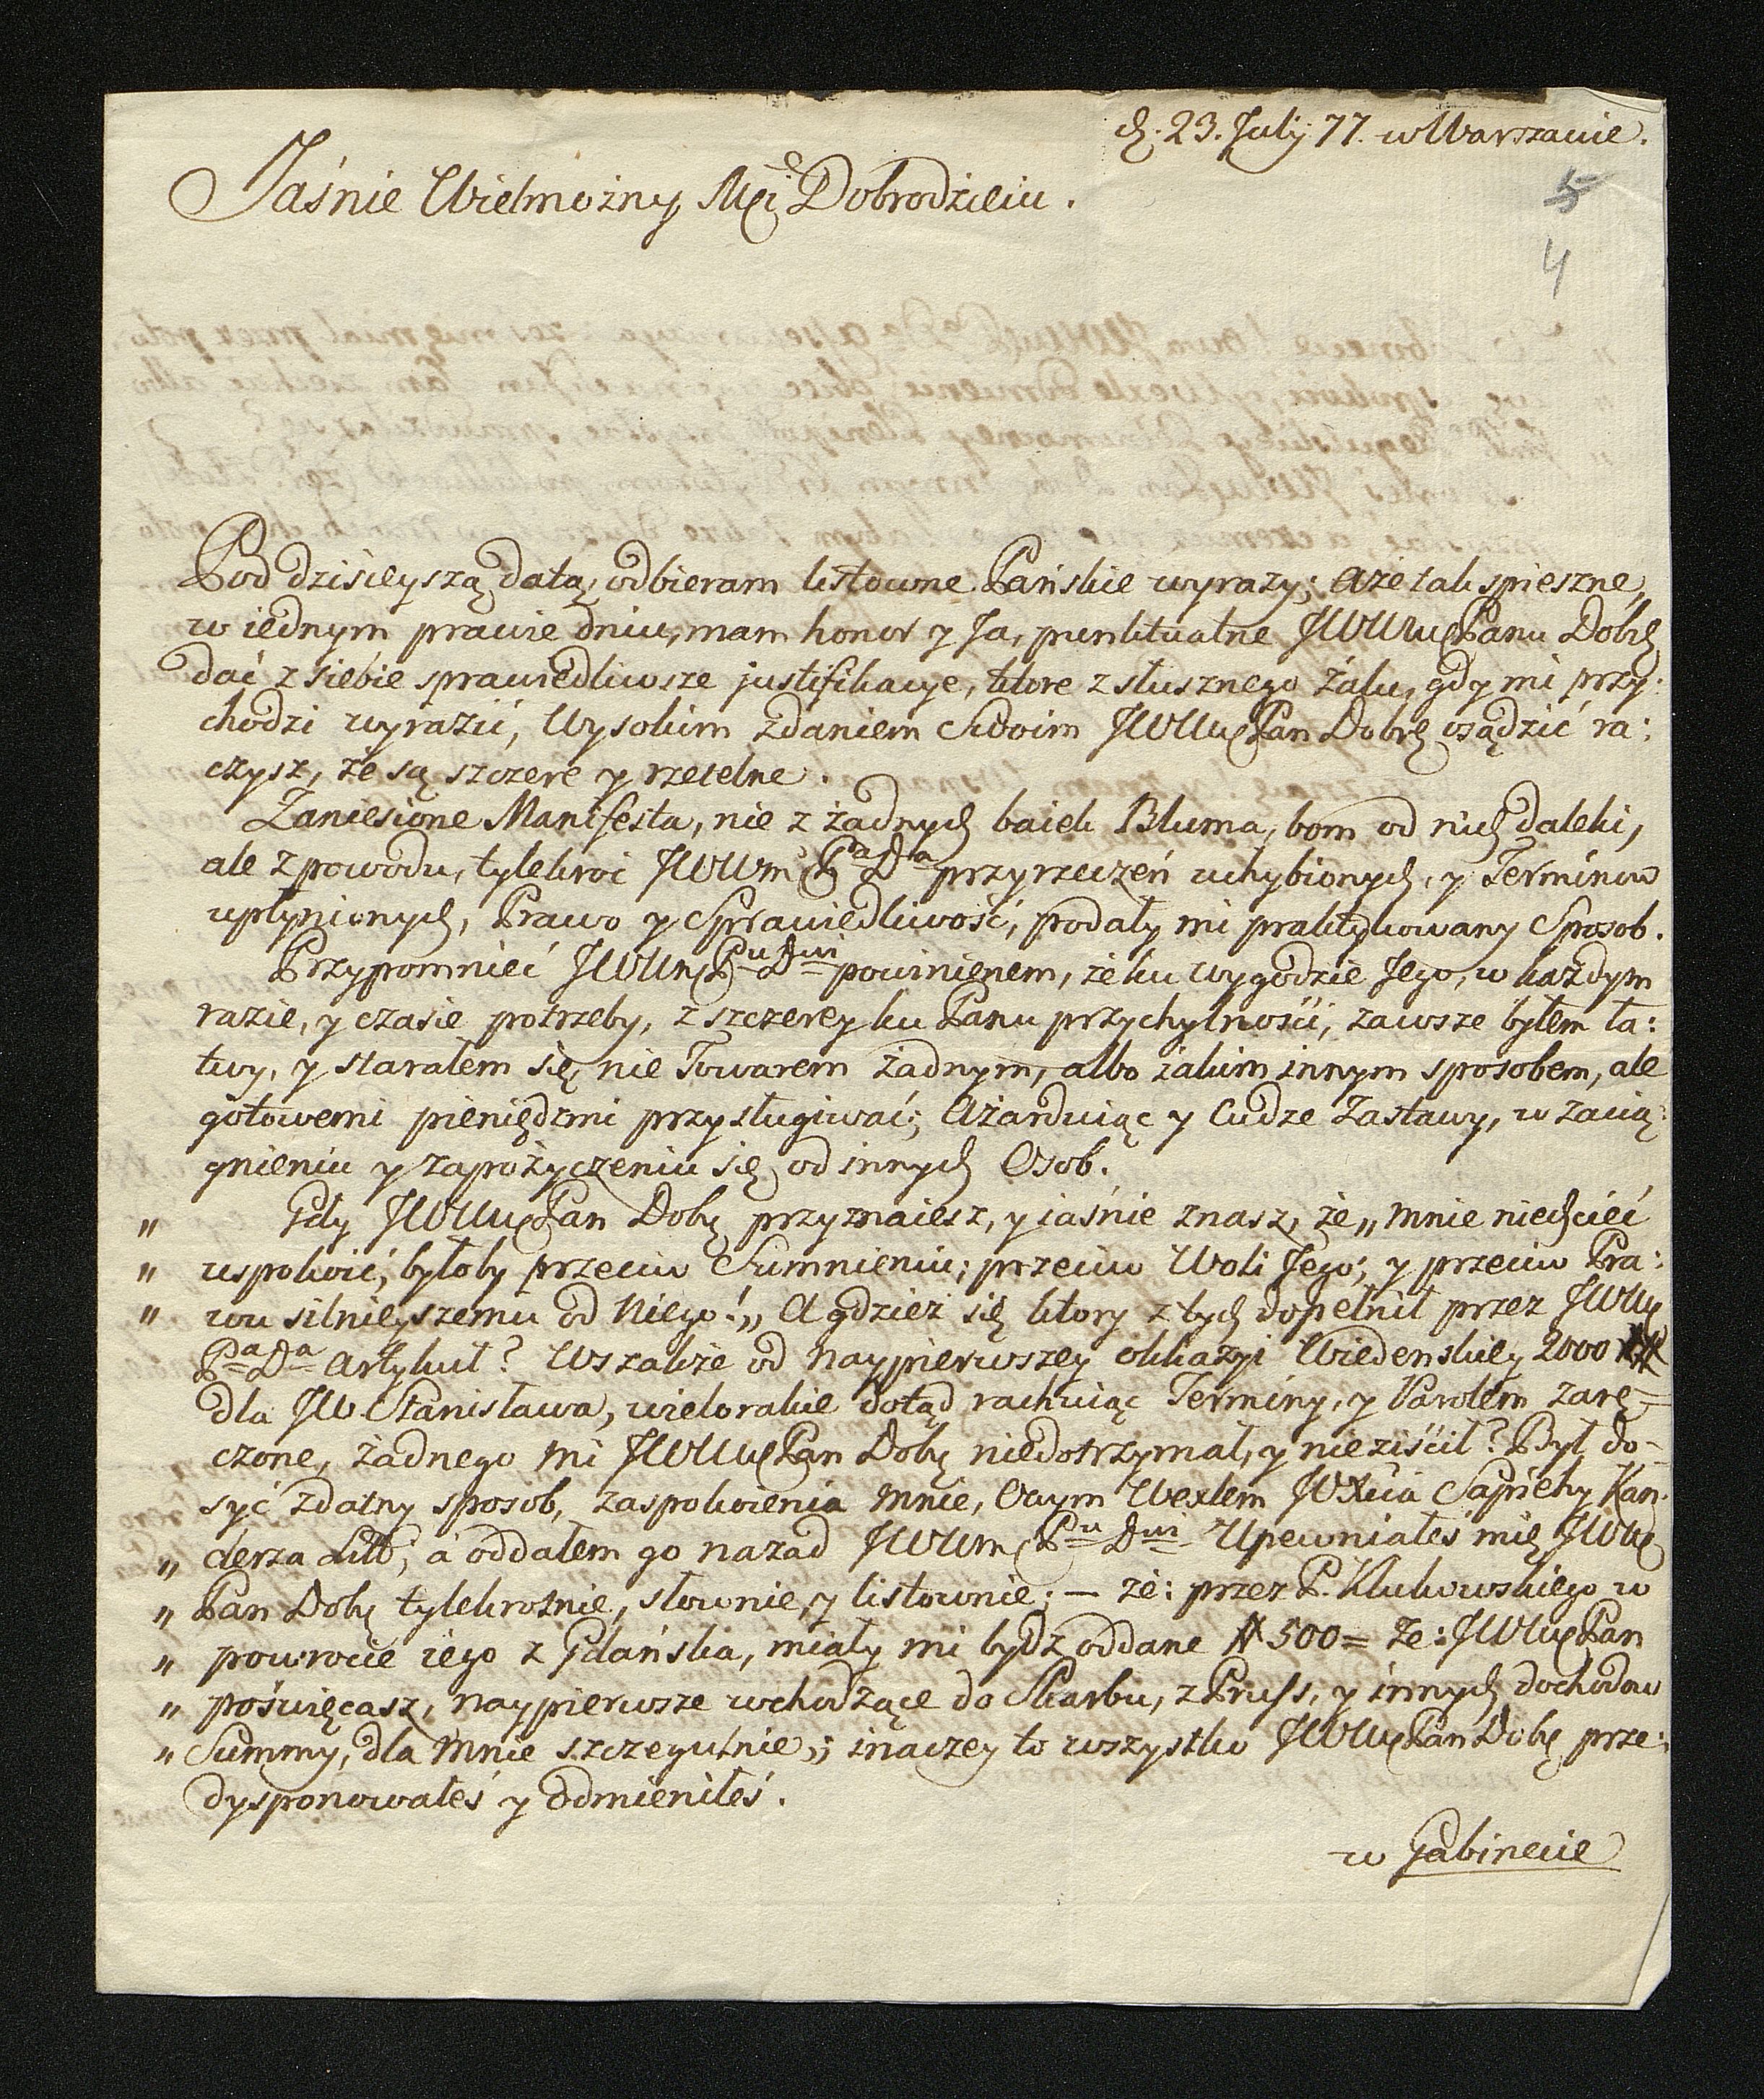 d. 23. Julij 77. w Warszawie.
5
4
Jaśnie Wielmożny Mci Dobrodzieiu.
Pod dzisieyszą datą, odbieram listowne Pańskie wyrazy; Aże tak spieszne,
w iednym prawie dniu, mam honor y Ja, punktualne JWWM Panu Dobr
dać z siebie sprawiedliwsze justifikacye, ktore z słusznego żalu, gdy mi przy:
chodzi wyrazić, Wysokim zdaniem Swoim JWWM Pan Dobr osądzić ra:
czysz, że są szczere y rzetelne.
Zaniesione Manifesta, nie z żadnych baiek Bluma, bom od nich daleki,
ale z powodu, tylekroć JWWM Pa Da przyrzeczeń uchybionych, y Terminow
upłynionych, Prawo y Sprawiedliwość, podały mi praktykowany Sposob.
Przypomnieć JWWM Pu Dwi powinienem, że ku wygodzie Jego, w każdym
razie, y czasie potrzeby, z szczerey ku Panu przychylności, zawsze byłem ła:
twy, y starałem się, nie Towarem żadnym, albo iakim innym sposobem, ale
gotowemi pieniędzmi przysługiwać; Ażarduiąc y Cudze Zastawy, w zacią:
gnieniu y zapożyczeniu się od innych Osob.
" Gdy JWWM Pan Dobr przyznaiesz, y iaśnie znasz, że „mnie niechcieć
" uspokoić, byłoby przeciw Sumnieniu; przeciw Woli Jego; y przeciw Pra:
" wu silnieyszemu od Niego!„ A gdzież się ktory z tych dopełnił przez JWWM
Pa Da Artykuł? Wszakże od naypierwszey okkazyi Wiedenskiey 2000 ##
dla JW. Stanisława, wielorakie dotąd rachuiąc Terminy, y Parolem zarę=
czone, żadnego mi JWWM Pan Dobr niedotrzymał, y nieziścił? Był do-
syć zdatny sposob, zaspokoienia mnie, Owym Wexlem JWXcia Sapiehy Kan:
" clerza Litt; á oddałem go nazad JWWM Pu Dwi Upewniałeś mię JWWM
" Pan Dobr tylekrotnie, słownie, y listownie; — że: przez P. Klukowskiego w
" powrocie iego z Gdańska, miały mi bydz oddane # 500= Że: JWWM Pan
" poświęcasz, naypierwsze wchodzące do Skarbu, z Pruss, y innych dochodow
" Summy, dla mnie szczegulnie„; inaczey to wszystko JWWM Pan Dobr prze:
dysponowałeś y odmieniłeś.
w Gabinecie